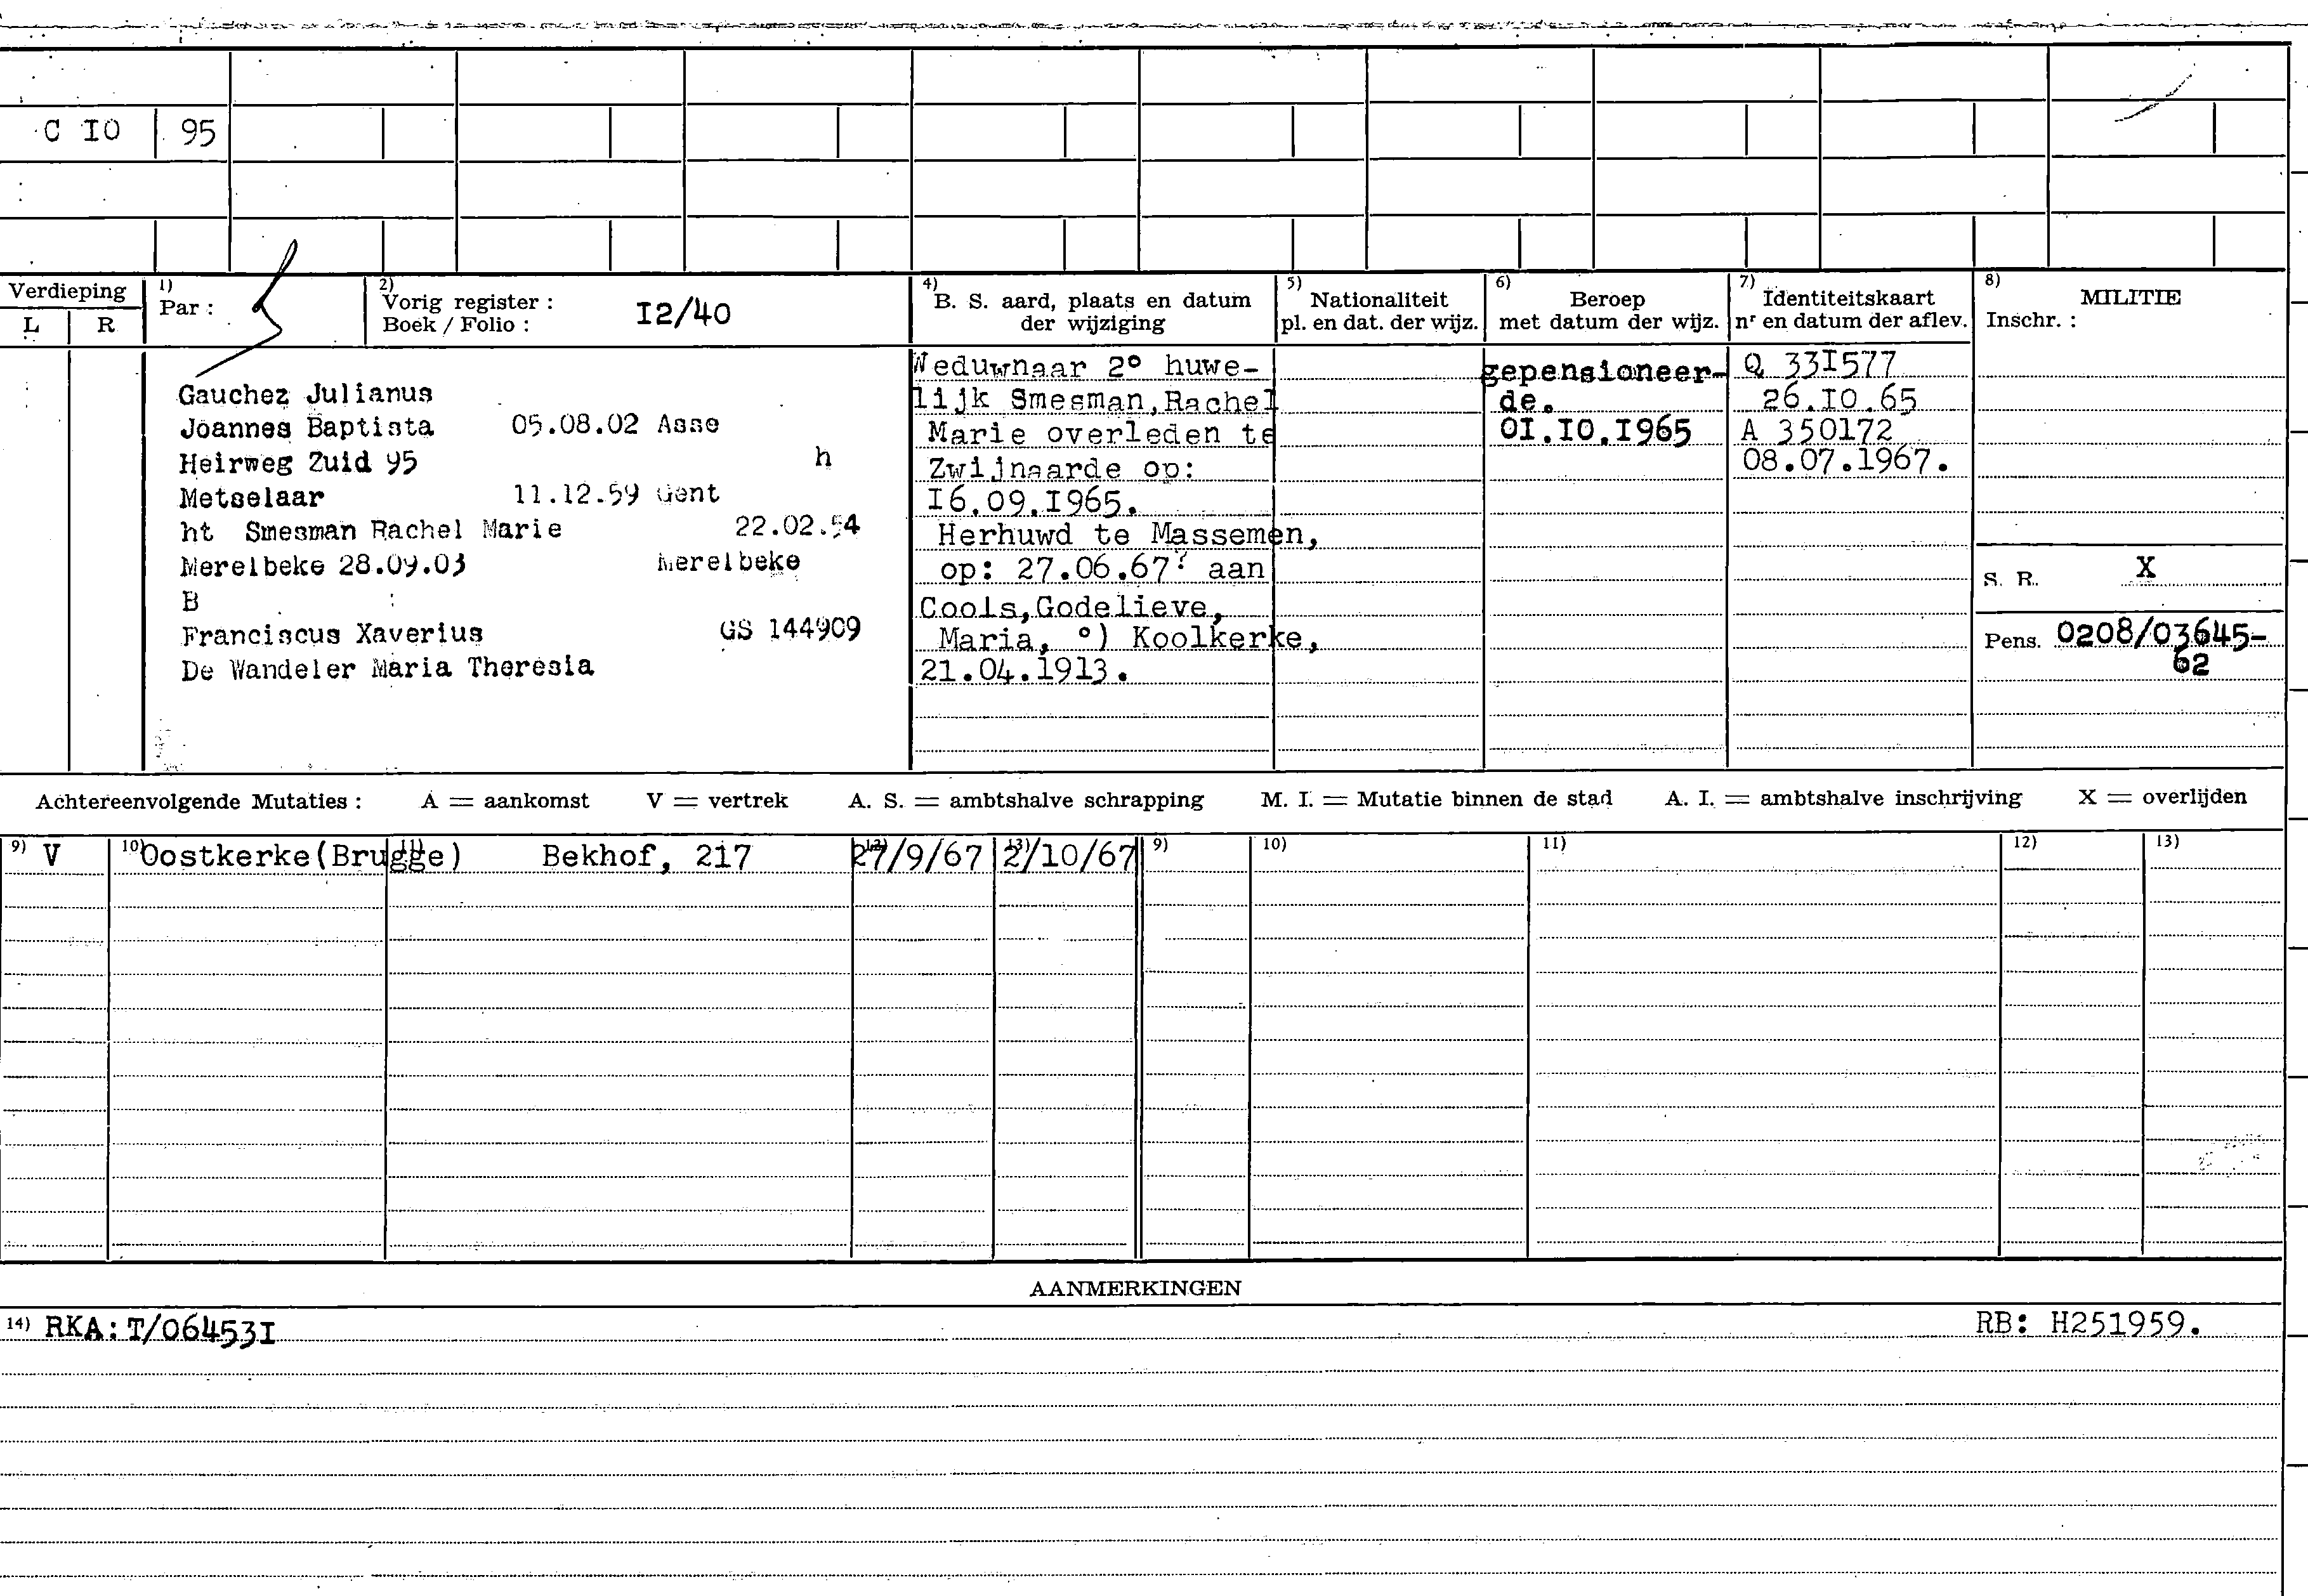 C IO 95
Verdieping
L R
1) Par :
2) Vorig register :
Boek / Folio : I2/40
4) B. S. aard, plaats en datum
der wijziging
5) Nationaliteit
pl. en dat. der wijz.
6) Beroep
met datum der wijz.
7) Identiteitskaart
nr en datum der aflev.
8) MILITIE
Inschr. :
Gauchez Julianus
Joannes Baptista 05.08.02 Asse
Heirweg Zuid 95 h
Metselaar 11.12.59 Gent
ht Smesman Rachel Marie 22.02.54
Merelbeke 28.09.03 Merelbeke
B
Franciscus Xaverius GS 144909
De Wandeler Maria Theresia
Weduwnaar 2° huwe-
lijk Smesman,Rachel
Marie overleden te
Zwijnaarde op:
I6.09.I965.
Herhuwd te Massemen,
op: 27.06.67. aan
Cools,Godelieve,
Maria, °) Koolkerke,
21.04.1913.
gepensioneer-
de.
OI.IO.I965
Q 33I577
26.IO.65
A 350172
08.07.1967.
S. R. X
Pens. 0208/03645-
62
Achtereenvolgende Mutaties : A = aankomst V = vertrek A. S. = ambtshalve schrapping M. I. = Mutatie binnen de stad A. I. = ambtshalve inschrijving X = overlijden
9) V 10) Oostkerke(Brugge) 11) Bekhof, 217 12) 27/9/67 13) 2/10/67 9) 10) 11) 12) 13)
AANMERKINGEN
14) RKA:T/06453I RB: H251959.